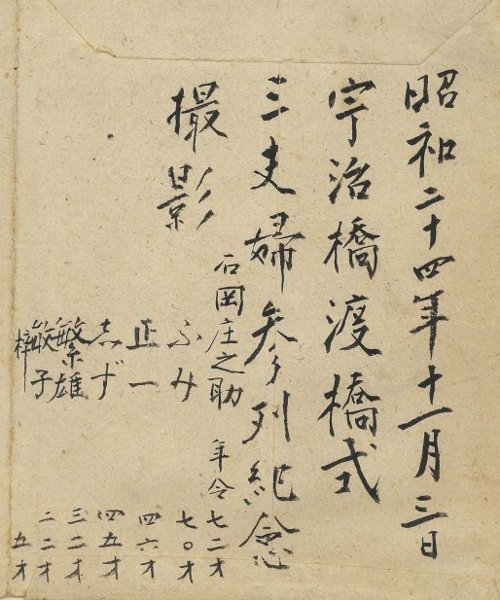 昭和二十四年十一月三日
宇治橋渡橋式
三夫婦参列紀念
撮影
石岡庄之助 年令七二才
ふみ 七〇才
正一 四六才
志ず 四五才
繁雄 三二才
敏子 二二才
梓 五才